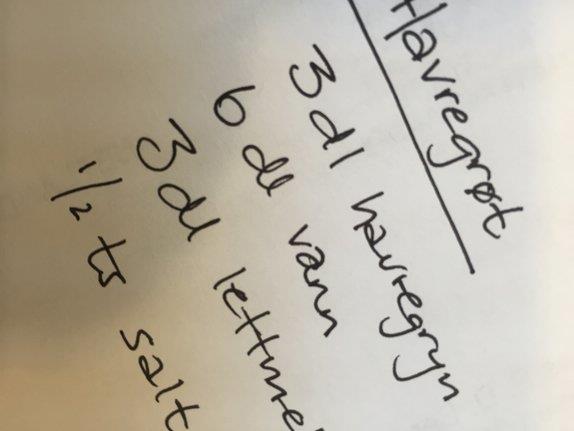 Havregrøt
3 dl havregryn
6 dl vann
3 dl lettme
1/2 ts salt